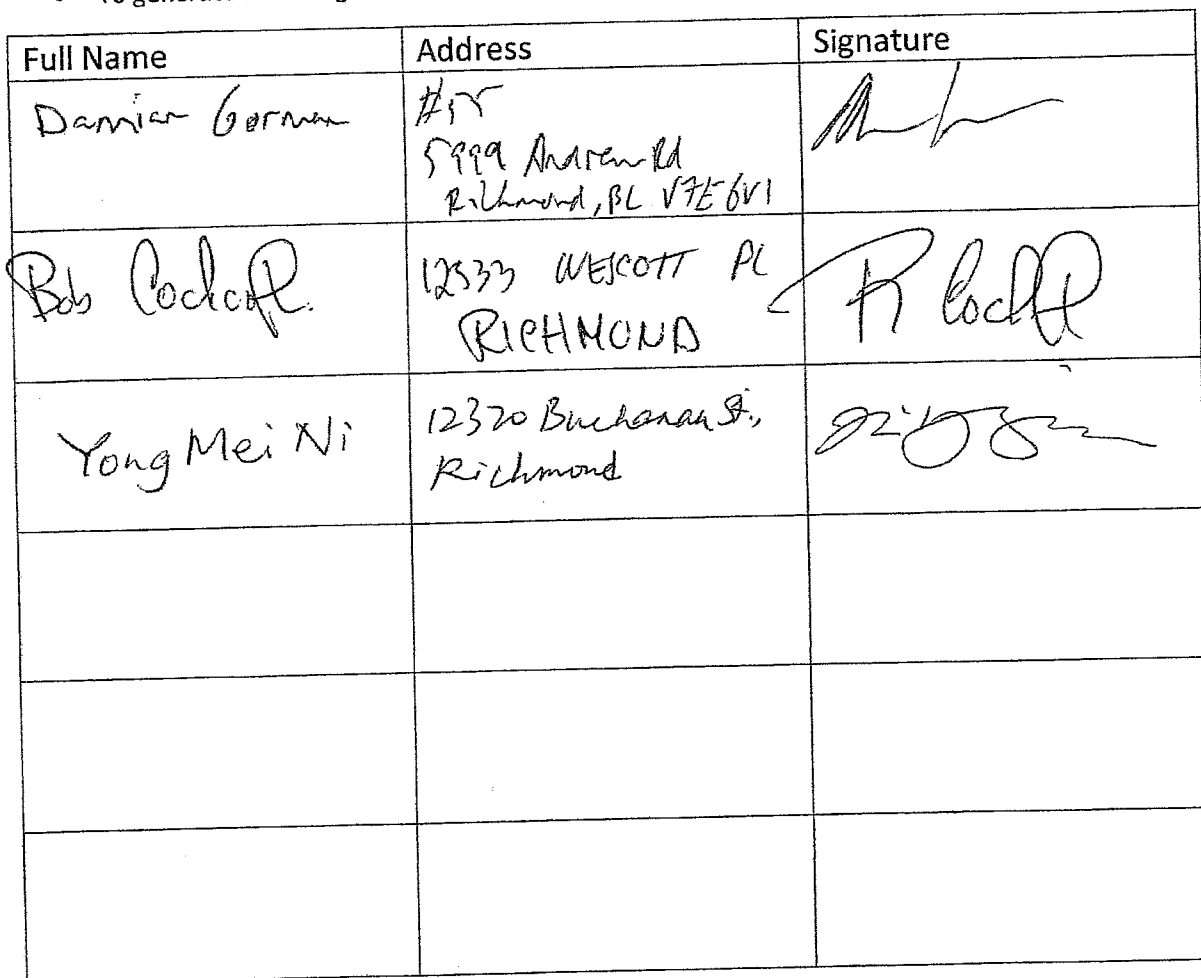 Full Name
Address
Signature
Damian Gorman
5999 Andrews Rd
Richmond, BC V7E 6V1
Bob
12533 WESCOTT PL
RICHMOND
R
Yong Mei Ni
12320 Buchanan St.,
Richmond